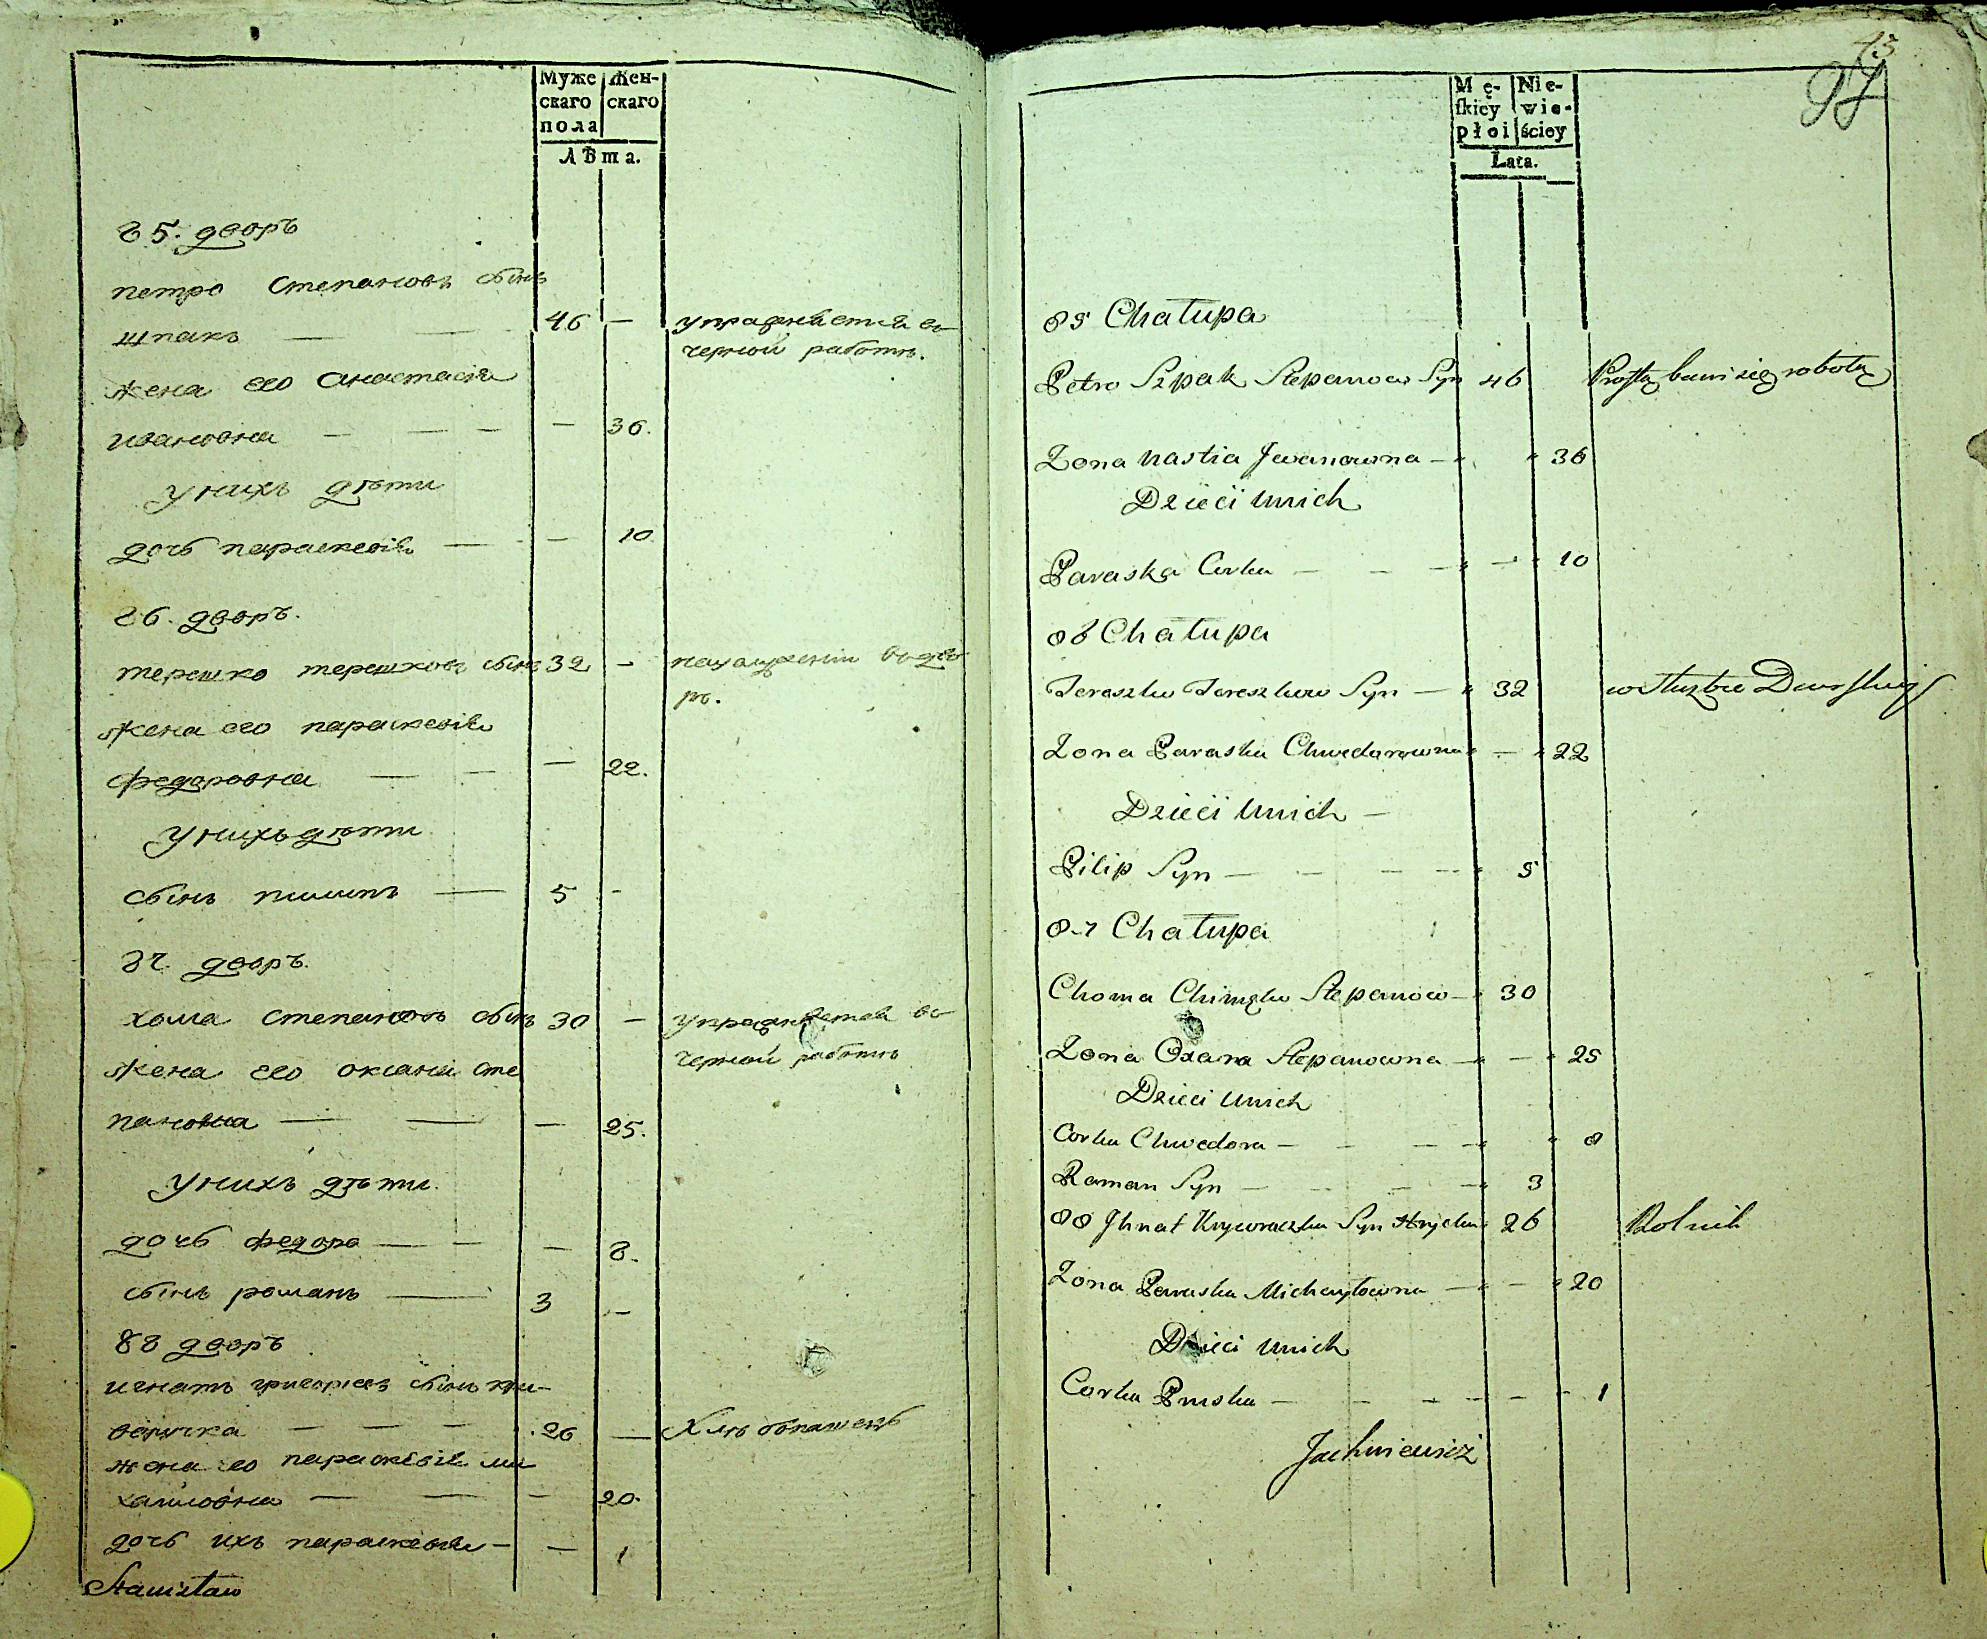 Муже
скаго
пола
Жен-
скаго
Лѣта.
85. дворъ
петро Степановъ сынъ
шпакъ — — 46 — упражняется въ
черной работѣ.
жена его Анастасія
ивановна — — — — 36.
у нихъ дѣти
дочь параскевія — — 10
86. дворъ.
терешко терешковъ сынъ 32 — въ дво
рѣ.
жена его параскевія
федоровна — — — 22.
у нихъ дѣти
сынъ пилипъ — 5 -
87. дворъ.
хома степановъ сынъ 30 — упражняется въ
черной работѣ
жена его оксана сте
пановна — — — 25.
у нихъ дѣти.
дочь федора — — — 8.
сынъ романъ — 3 —
88 дворъ
игнатъ григорьевъ сынъ кри-
воручка — — — 26 — Хлѣбопашецъ
жена его параскевія ми
хайловна — — — 20.
дочь ихъ параскевія — — 1
Stanisław
43
97
Mę-
skiey
płci
Nie-
wie-
ściey
Lata.
85 Chałupa
Petro Szpak Stepanow Syn 46 Prostą bawi się robotą
Zona Nastia Jwanowna — " " 36
Dzieci unich
Paraska Corka — — — " — " 10
86 Chałupa
Tereszko Tereszkow Syn — " 32 w służbie Dworskiey
Zona Paraska Chwedorowna " — " 22
Dzieci unich —
Pilip Syn — — — — " 5
87 Chałupa
Choma Stepanow — " 30
Zona Oxana Stepanowna — " — " 25
Dzieci unich
Corka Chwedora — — — — " " 8
Raman Syn — — — — " 3
88 Jhnat Kryworuczka Syn Hrycka " 26 Rolnik
Zona Paraska Michayłowna — " — " 20
Dzieci unich
Corka Pruska — — — — — - 1
Jachniewicz